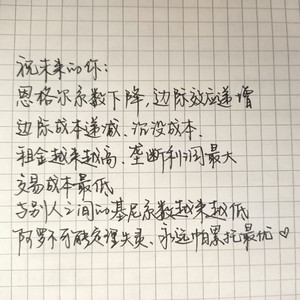 祝未来的你：
恩格尔系数下降，边际效应递增
边际成本递减、沉没成本、
租金越来越高、垄断利润最大
交易成本最低
与别人之间的基尼系数越来越低
阿罗不可能定理失灵、永远帕累托最优♡